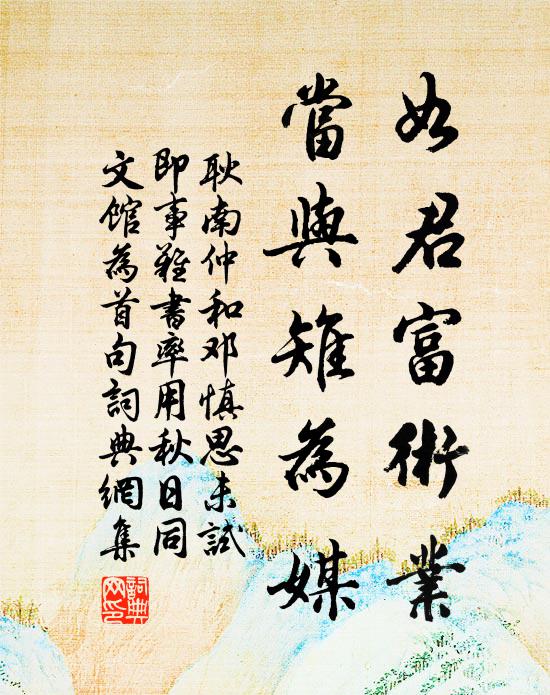 如君富術業
當與雉為媒
耿南仲和邓慎思未試
即事雜書率用秋日同
文馆為首句詞典網集
詞典网印